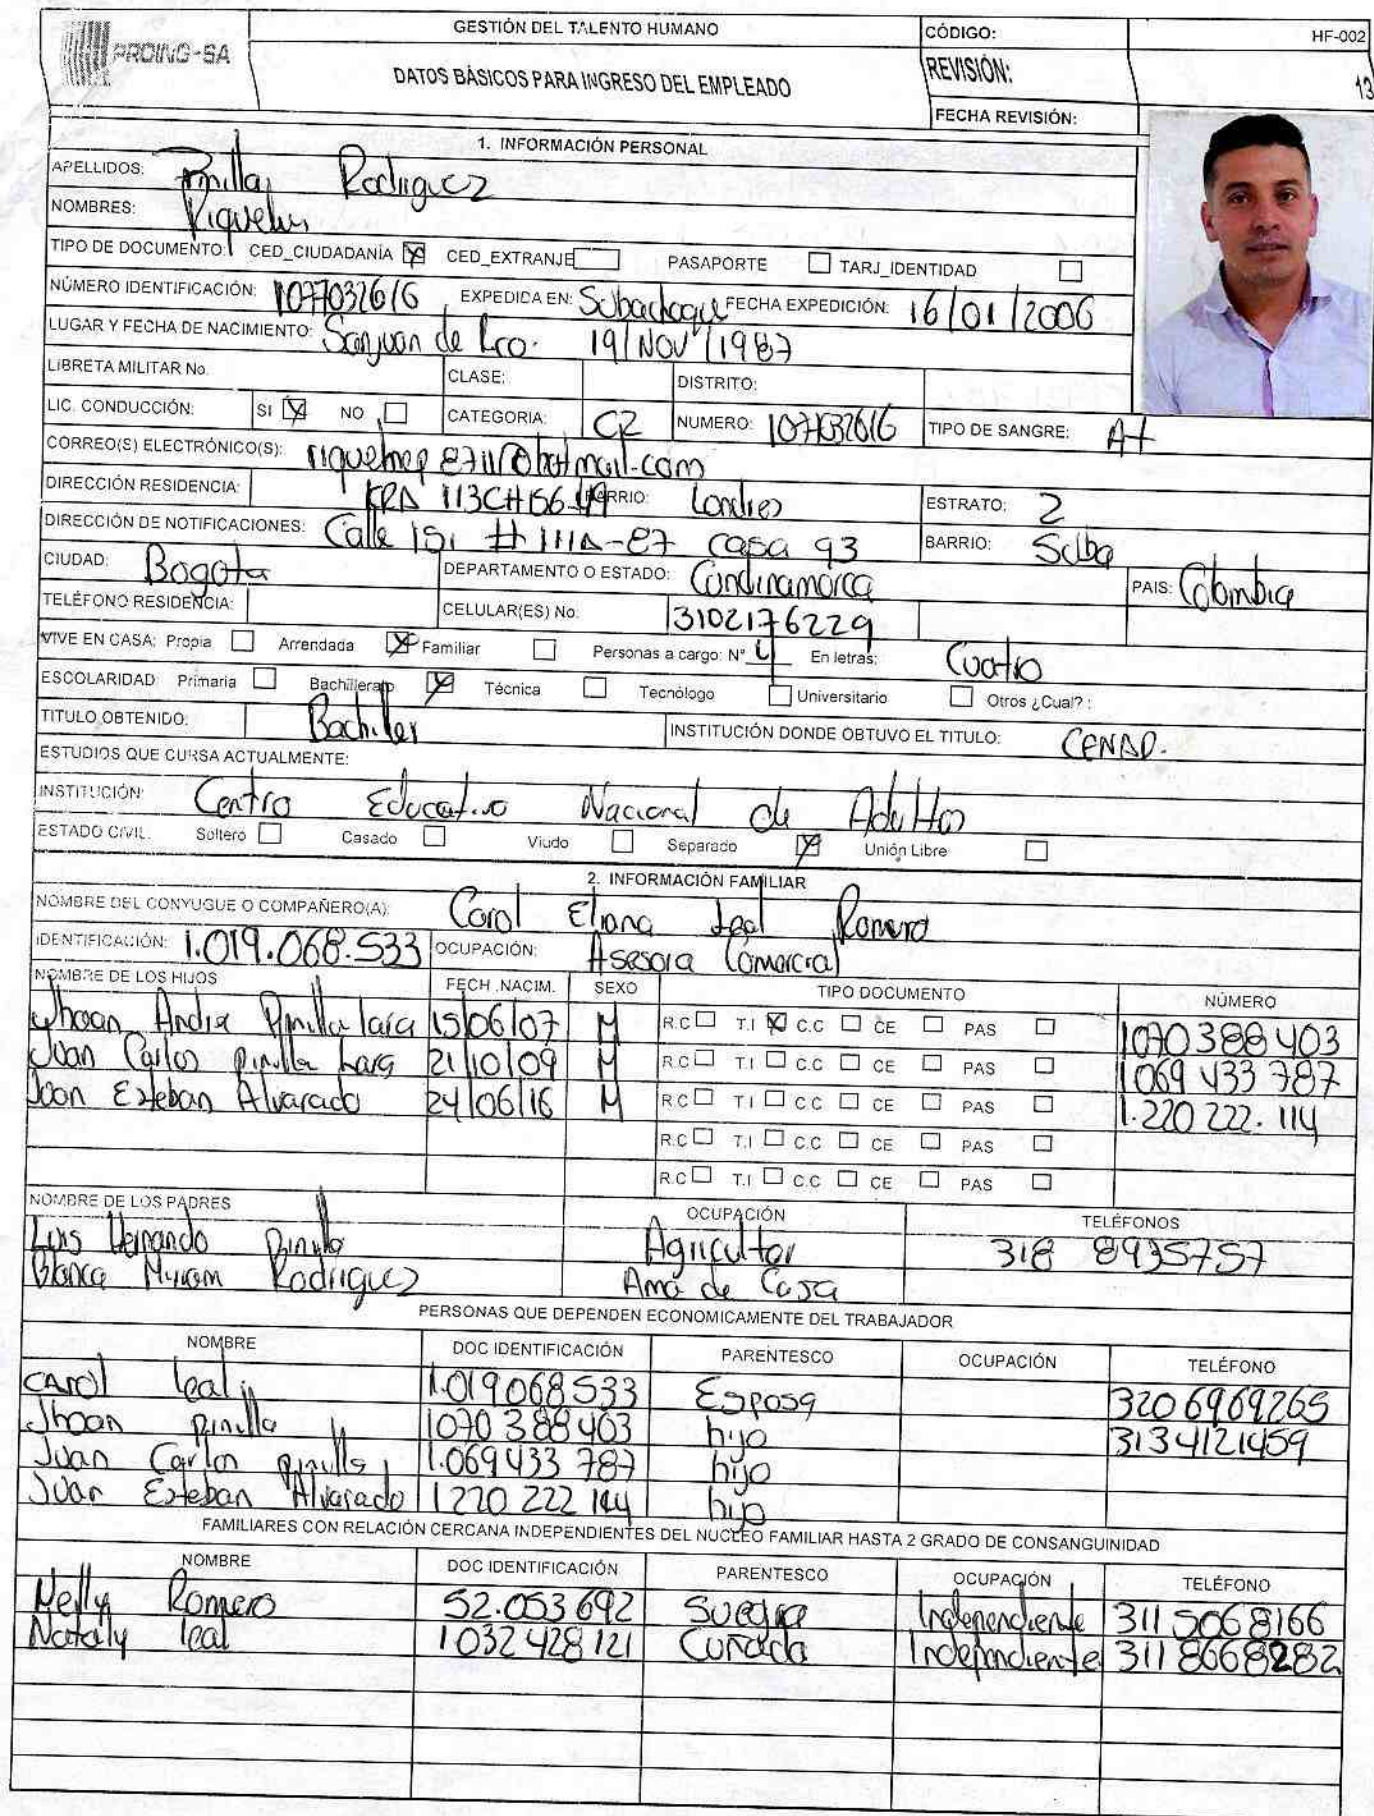 PROING-SA
GESTIÓN DEL TALENTO HUMANO
CÓDIGO: HF-002
DATOS BÁSICOS PARA INGRESO DEL EMPLEADO
REVISIÓN: 13
FECHA REVISIÓN:
1. INFORMACIÓN PERSONAL
APELLIDOS: Pinilla Rodriguez
NOMBRES: Riquelme
TIPO DE DOCUMENTO: CED_CIUDADANÍA X CED_EXTRANJE PASAPORTE TARJ_IDENTIDAD
NÚMERO IDENTIFICACIÓN: 1077032616 EXPEDICA EN: Subachoque FECHA EXPEDICIÓN: 16/01/2006
LUGAR Y FECHA DE NACIMIENTO: Sanjuan de 19/NOV/1987
LIBRETA MILITAR No. CLASE: DISTRITO:
LIC. CONDUCCIÓN: SI X NO CATEGORIA: C2 NUMERO: TIPO DE SANGRE: A+
CORREO(S) ELECTRÓNICO(S):
DIRECCIÓN RESIDENCIA: KRA 113C#156-49 BARRIO: Londres ESTRATO: 2
DIRECCIÓN DE NOTIFICACIONES: Calle 151 # 111A-87 casa 93 BARRIO: Suba
CIUDAD: Bogota DEPARTAMENTO O ESTADO: Cundinamarca PAIS: Colombia
TELÉFONO RESIDENCIA: CELULAR(ES) No. 3102176229
VIVE EN CASA: Propia Arrendada X Familiar Personas a cargo: N° 4 En letras: Cuatro
ESCOLARIDAD Primaria Bachillerato X Técnica Tecnólogo Universitario Otros ¿Cual? :
TITULO OBTENIDO: Bachiller INSTITUCIÓN DONDE OBTUVO EL TITULO: CENAD.
ESTUDIOS QUE CURSA ACTUALMENTE:
INSTITUCIÓN Centro Educativo Nacional de Adultos
ESTADO CIVIL. Soltero Casado Viudo Separado X Unión Libre
2. INFORMACIÓN FAMILIAR
NOMBRE DEL CONYUGUE O COMPAÑERO(A): Carol Eliana Leal Romero
IDENTIFICACIÓN: 1.019.068.533 OCUPACIÓN: Asesora Comercial
NOMBRE DE LOS HIJOS FECH .NACIM. SEXO TIPO DOCUMENTO NÚMERO
Jhoan Andre Pinilla lara 15/06/07 M R.C T.I X C.C CE PAS 1070388403
Juan Carlos pinilla Lara 21/10/09 M R.C T.I C.C CE PAS 1069 433 787
Joan Esteban Alvarado 24/06/16 M R.C T.I C.C CE PAS 1.220 222. 114
R.C T.I C.C CE PAS
R.C T.I C.C CE PAS
NOMBRE DE LOS PADRES OCUPACIÓN TELÉFONOS
Luis Hernando Pinilla Agricultor 318 8935757
Blanca Myriam Rodriguez Ama de Casa
PERSONAS QUE DEPENDEN ECONOMICAMENTE DEL TRABAJADOR
NOMBRE DOC IDENTIFICACIÓN PARENTESCO OCUPACIÓN TELÉFONO
CAROl leal 1.019068533 Esposa 3206969265
Jhoan pinilla 1070 388 403 hijo 3134121459
Juan Carlos pinilla 1.069433 787 hijo
Juan Esteban Alvarado 1220 222 114 hijo
FAMILIARES CON RELACIÓN CERCANA INDEPENDIENTES DEL NUCLEO FAMILIAR HASTA 2 GRADO DE CONSANGUINIDAD
NOMBRE DOC IDENTIFICACIÓN PARENTESCO OCUPACIÓN TELÉFONO
Nelly Romero 52.053 692 Suegra Independiente 311 5068166
Nataly leal 1032 428 121 Cuñada Independiente 311 8668282